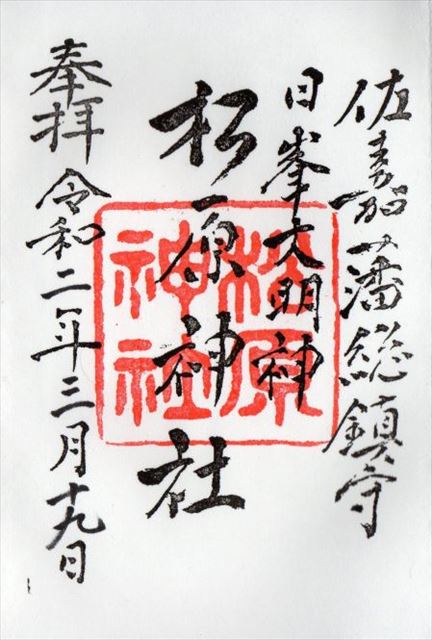 佐嘉藩総鎮守
日峯大明神
松原神社
奉拝
令和二年三月十九日
松原
神社